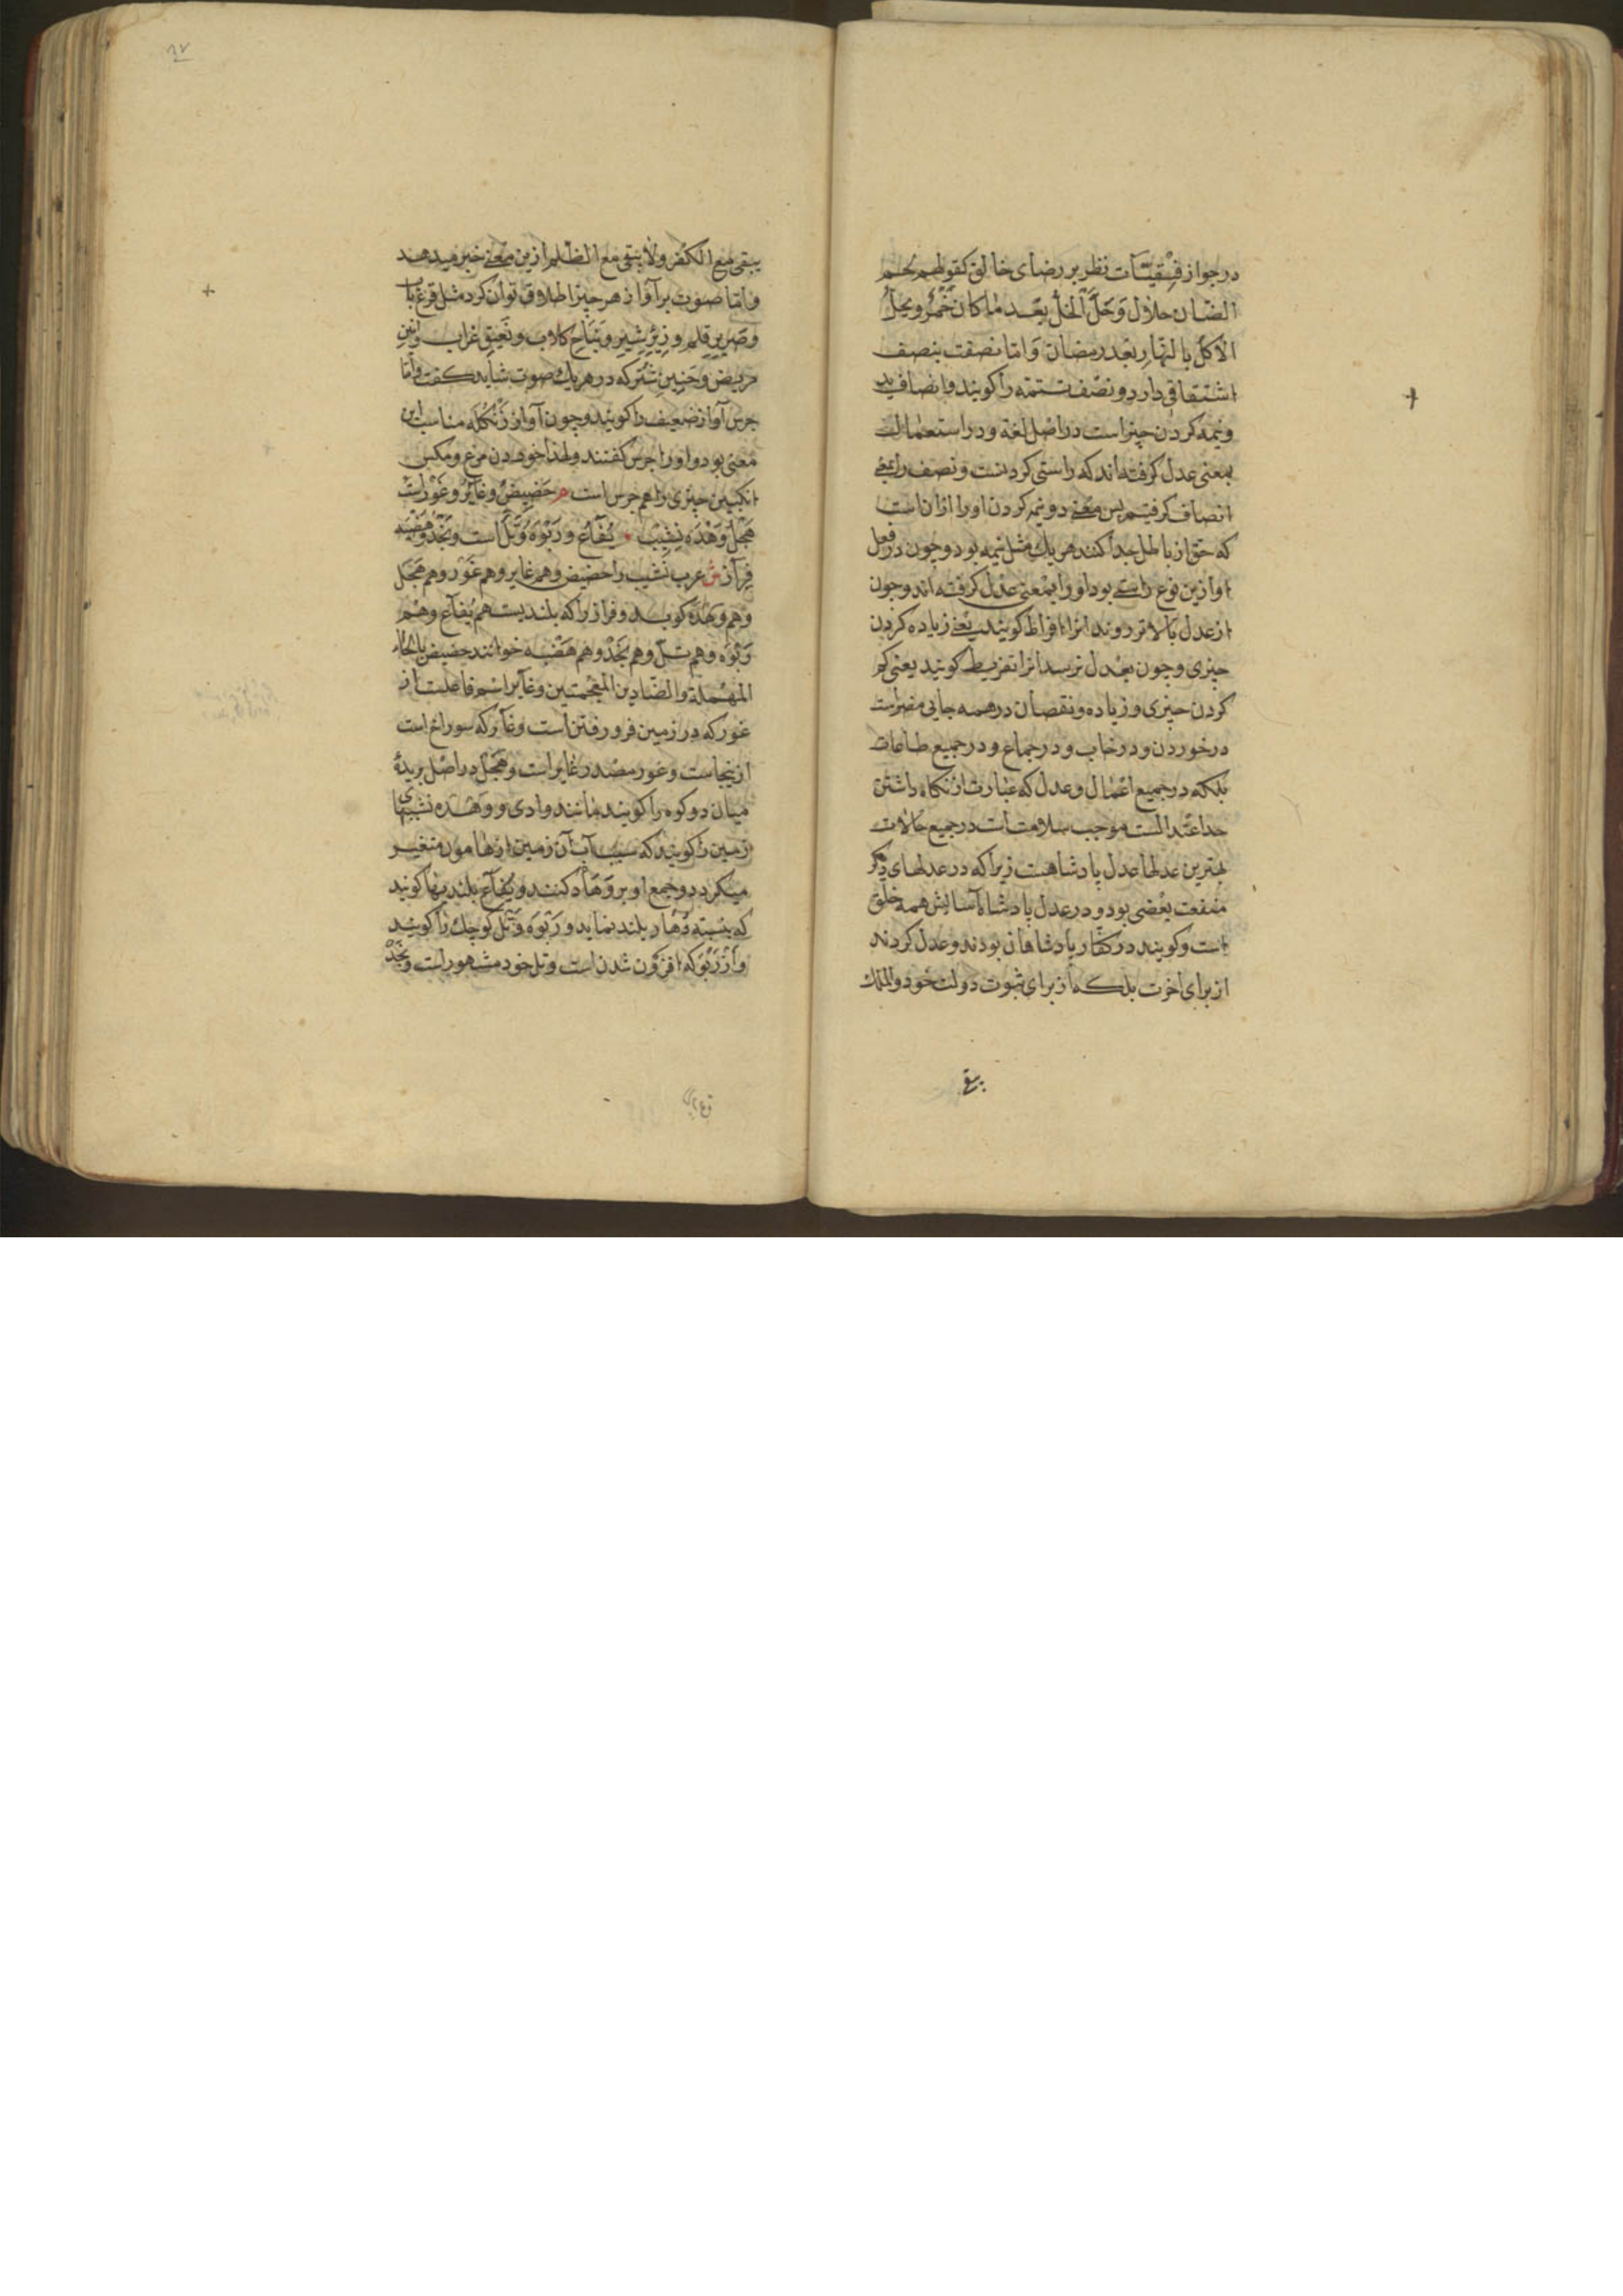 در جواز فسقیّات نظر بر رضای خالق کقولهم لحم
الضّان حلال وَحَلَّ الخلُّ بعد ما کان خَمرٌ و یحلُّ
الاکل بالنّهارِ بعد رمضان وَ امّا نصفت بنصف
اشتقاقی دارد و نصف تتمّه را کویند و انصاف
ونیمه کردن چیز است در اصل لغة و در استعمالات
بمعنی عدل کرفته اند که راستی کردنست و نصف را بمعنی
انصاف کرفتیم پس معنی دو نیمه کردن او را ازان است
که حق از باطل جدا کنند هر یك مثل نیمه بود و چون در فعل
او ازین نوع راستی بود او را بمعنی عدل کرفته اند و چون
از عدل بالاتر روند انرا افراط کویند یعنی زیاده کردن
چیزی و چون بعدل نرسد انرا تفریط کویند یعنی کم
کردن چیزی و زیاده و نقصان در همه جایی مضرّاست
در خوردن و در خاب و در جماع و در جمیع طاعات
بلکه در جمیع اعمال و عدل که عبارت از نکاه داشتن
حد اعتدالست موجب سلامت است در جمیع حالات
بهترین عدلها عدل پادشاهست زیرا که در عدلهای دیکر
منفعت بعضی بود و در عدل پادشاه آسایش همه خلق
است و کویند در کفّار پادشاهان بودند و عدل کردند
از برای اخرت بلکه از برای ثبوت دولت خود و الملك
یبقی
یبقی مع الکفر ولا یبقی مع الظلم ازین معنی خبر میدهد
و امّا صوت بر آواز هر چیز اطلاق توان کرد مثل قرع باب
وصریرِ قلم و زئیرِ شیر و نباحِ کلاب و نعیقِ غراب و انینِ
مریض و حَنینِ شتر که در هر یك صوت شاید کفت و امّا
جرس آواز ضعیف را کویند و چون آواز زنکله مناسب این
معنی بود او را جرس کفتند و لهذا خوردن مرغ و مکس
انکبین چیزی را هم جرس است م حَضیضٌ و غایرٌ و غَورٌ است
هَجلٌ وَهده نشیب یُفاع و رَبوَه و تَلّ است و نَجد و هضبه
فِراز ش عرب نَشیب را حضیض و هم غایر و هم غَور و هم هَجل
و هم وَهده کوید و فراز را که بلندیست هم یُفاع و هم
رَبْوَه و هم تلّ و هم نَجْد و هم هَضْبه خوانند حضیض بالحاء
المهملة والضّادین المعجمتین و غایر اسم فاعلست از
غور که در زمین فرو رفتن است و غار که سوراخ است
ازینجاست و غور مصدر غایر است و هَجْل در اصل بریدهٔ
میان دو کوه را کویند مانند وادی و وَهْده نشیبهای
زمین را کویند که سبب آب آن زمین از هامون متغیر
میکردد و جمع او بر وَهاد کنند و یُفاع بلندیها کویند
که بنسبته وهاد بلند نماید و رَبْوَه و تلّ کوچك را کویند
و از رَبْوَ که افزون شدن است و تل خود مشهور است و نَجْدْ